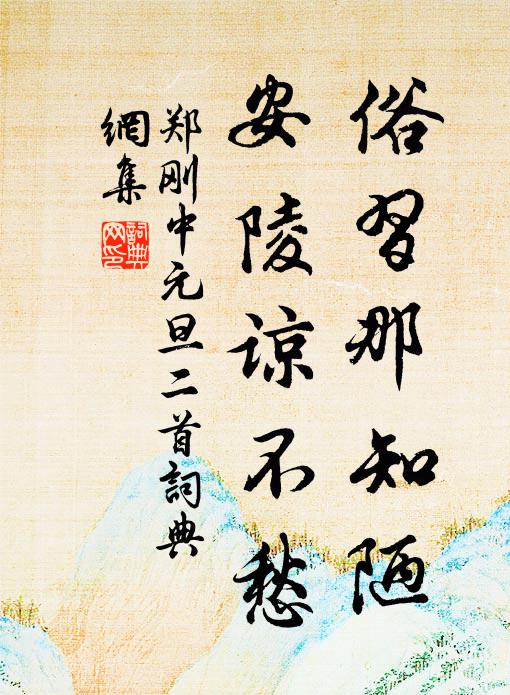 俗習那知陋
安陵諒不愁
郑刚中元旦二首詞典
網集
詞典
网印